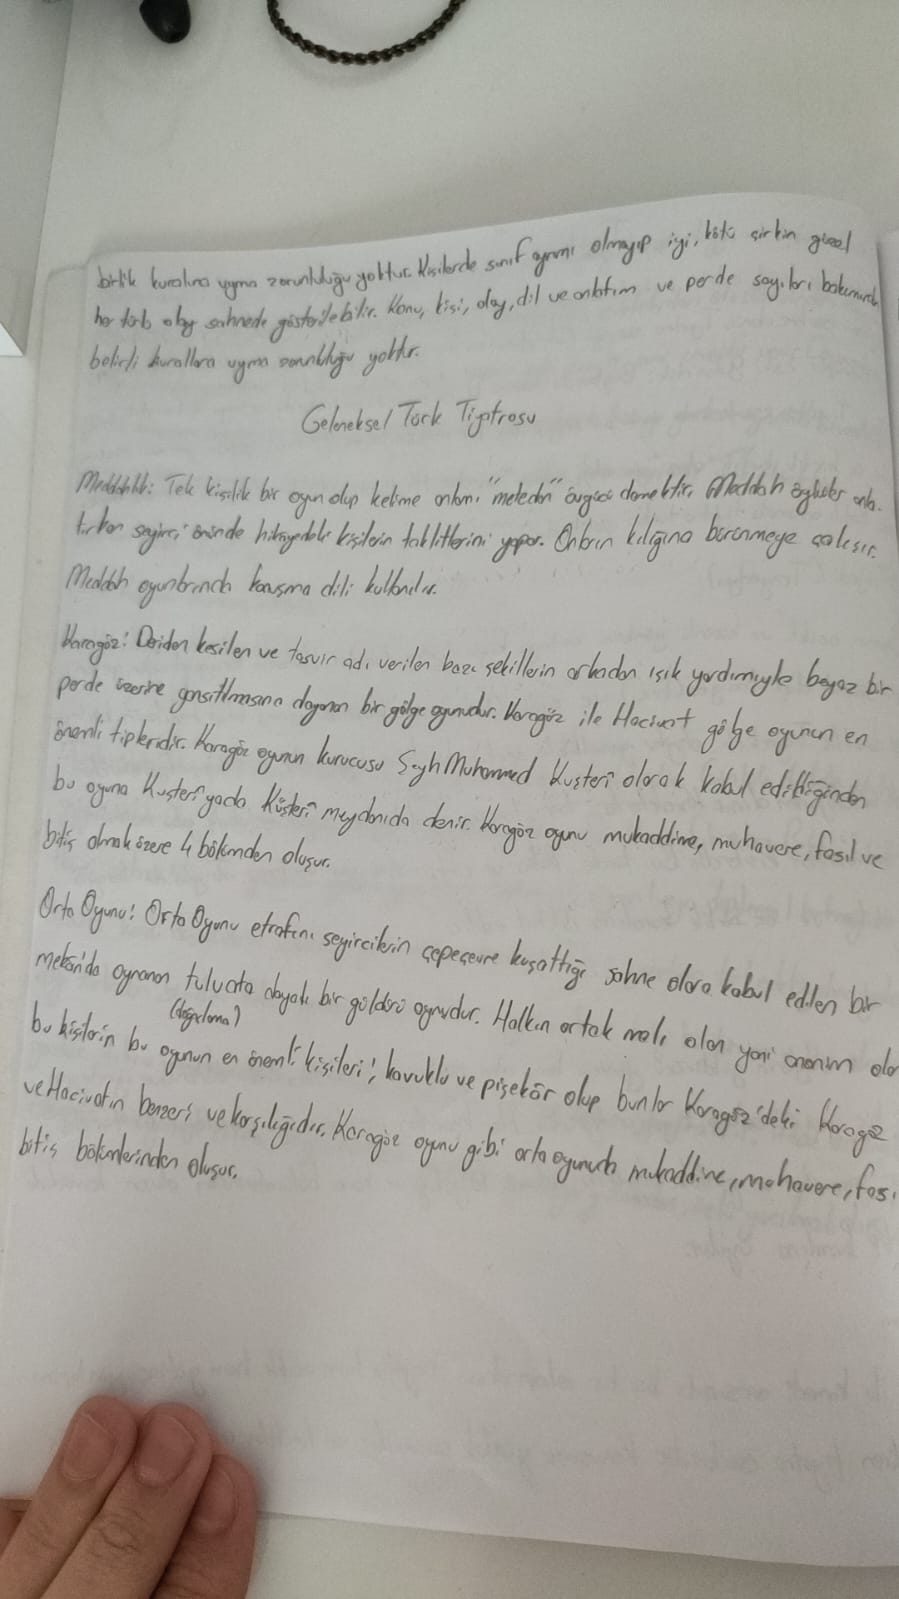 birlik kuralına uyma zorunluluğu yoktur. Kişilerde sınıf ayrımı olmayıp iyi, kötü çirkin güzel
her türlü olay sahnede gösterilebilir. Konu, kişi, olay, dil ve anlatım ve perde sayıları bakımından
belirli kurallara uyma zorunluluğu yoktur.
Geleneksel Türk Tiyatrosu
Meddahlık: Tek kişilik bir oyun olup kelime anlamı "meteden" övgücü demektir. Meddah öyküler anla-
tırken seyirci önünde hikayedeki kişilerin taklitlerini yapar. Onların kılığına bürünmeye çalışır.
Meddah oyunlarında konuşma dili kullanılır.
Karagöz: Deriden kesilen ve tasvir adı verilen bazı şekillerin arkadan ışık yardımıyla beyaz bir
perde üzerine yansıtılmasına dayanan bir gölge oyunudur. Karagöz ile Hacivat gölge oyunun en
önemli tipleridir. Karagöz oyunun kurucusu Şeyh Muhammed Kuşteri olarak kabul edildiğinden
bu oyuna Kuşteri yada Küşteri meydanıda denir. Karagöz oyunu mukaddime, muhavere, fasıl ve
bitiş olmak üzere 4 bölümden oluşur.
Orta Oyunu: Orta Oyunu etrafını seyircilerin çepeçevre kuşattığı sahne olara kabul edilen bir
mekan'da oynanan tuluata dayalı bir güldürü oyunudur. Halkın ortak malı olan yani anonim olan
(doğaçlama)
bu kişilerin bu oyunun en önemli kişileri; kavuklu ve pişekâr olup bunlar Karagöz'deki Karagöz
ve Hacivatın benzeri ve karşılığıdır. Karagöz oyunu gibi orta oyunuda mukaddime, muhavere, fası
bitiş bölümlerinden oluşur.